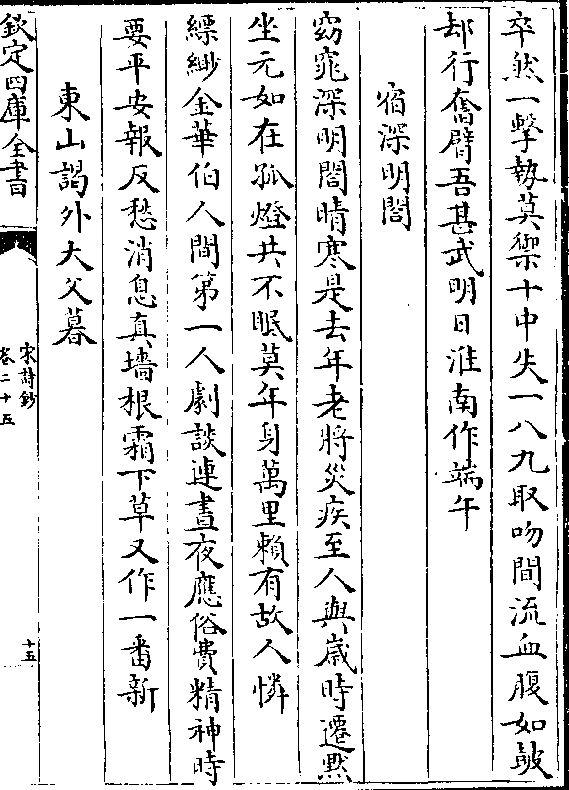 卒然一擊埶莫禦十中失一八九取吻間流血腹如皷
却行奮臂吾甚武明日淮南作端午
宿深明閣
窈窕深明閣晴寒是去年老將災疾至人與歲時遷黙
坐元如在孤燈共不眠莫年身萬里賴有故人憐
縹緲金華伯人間第一人劇談連晝夜應俗費精神時
要平安報反愁消息真墻根霜下草又作一番新
東山謁外大父墓
欽定四庫全書
宋詩鈔
卷二十五
十五